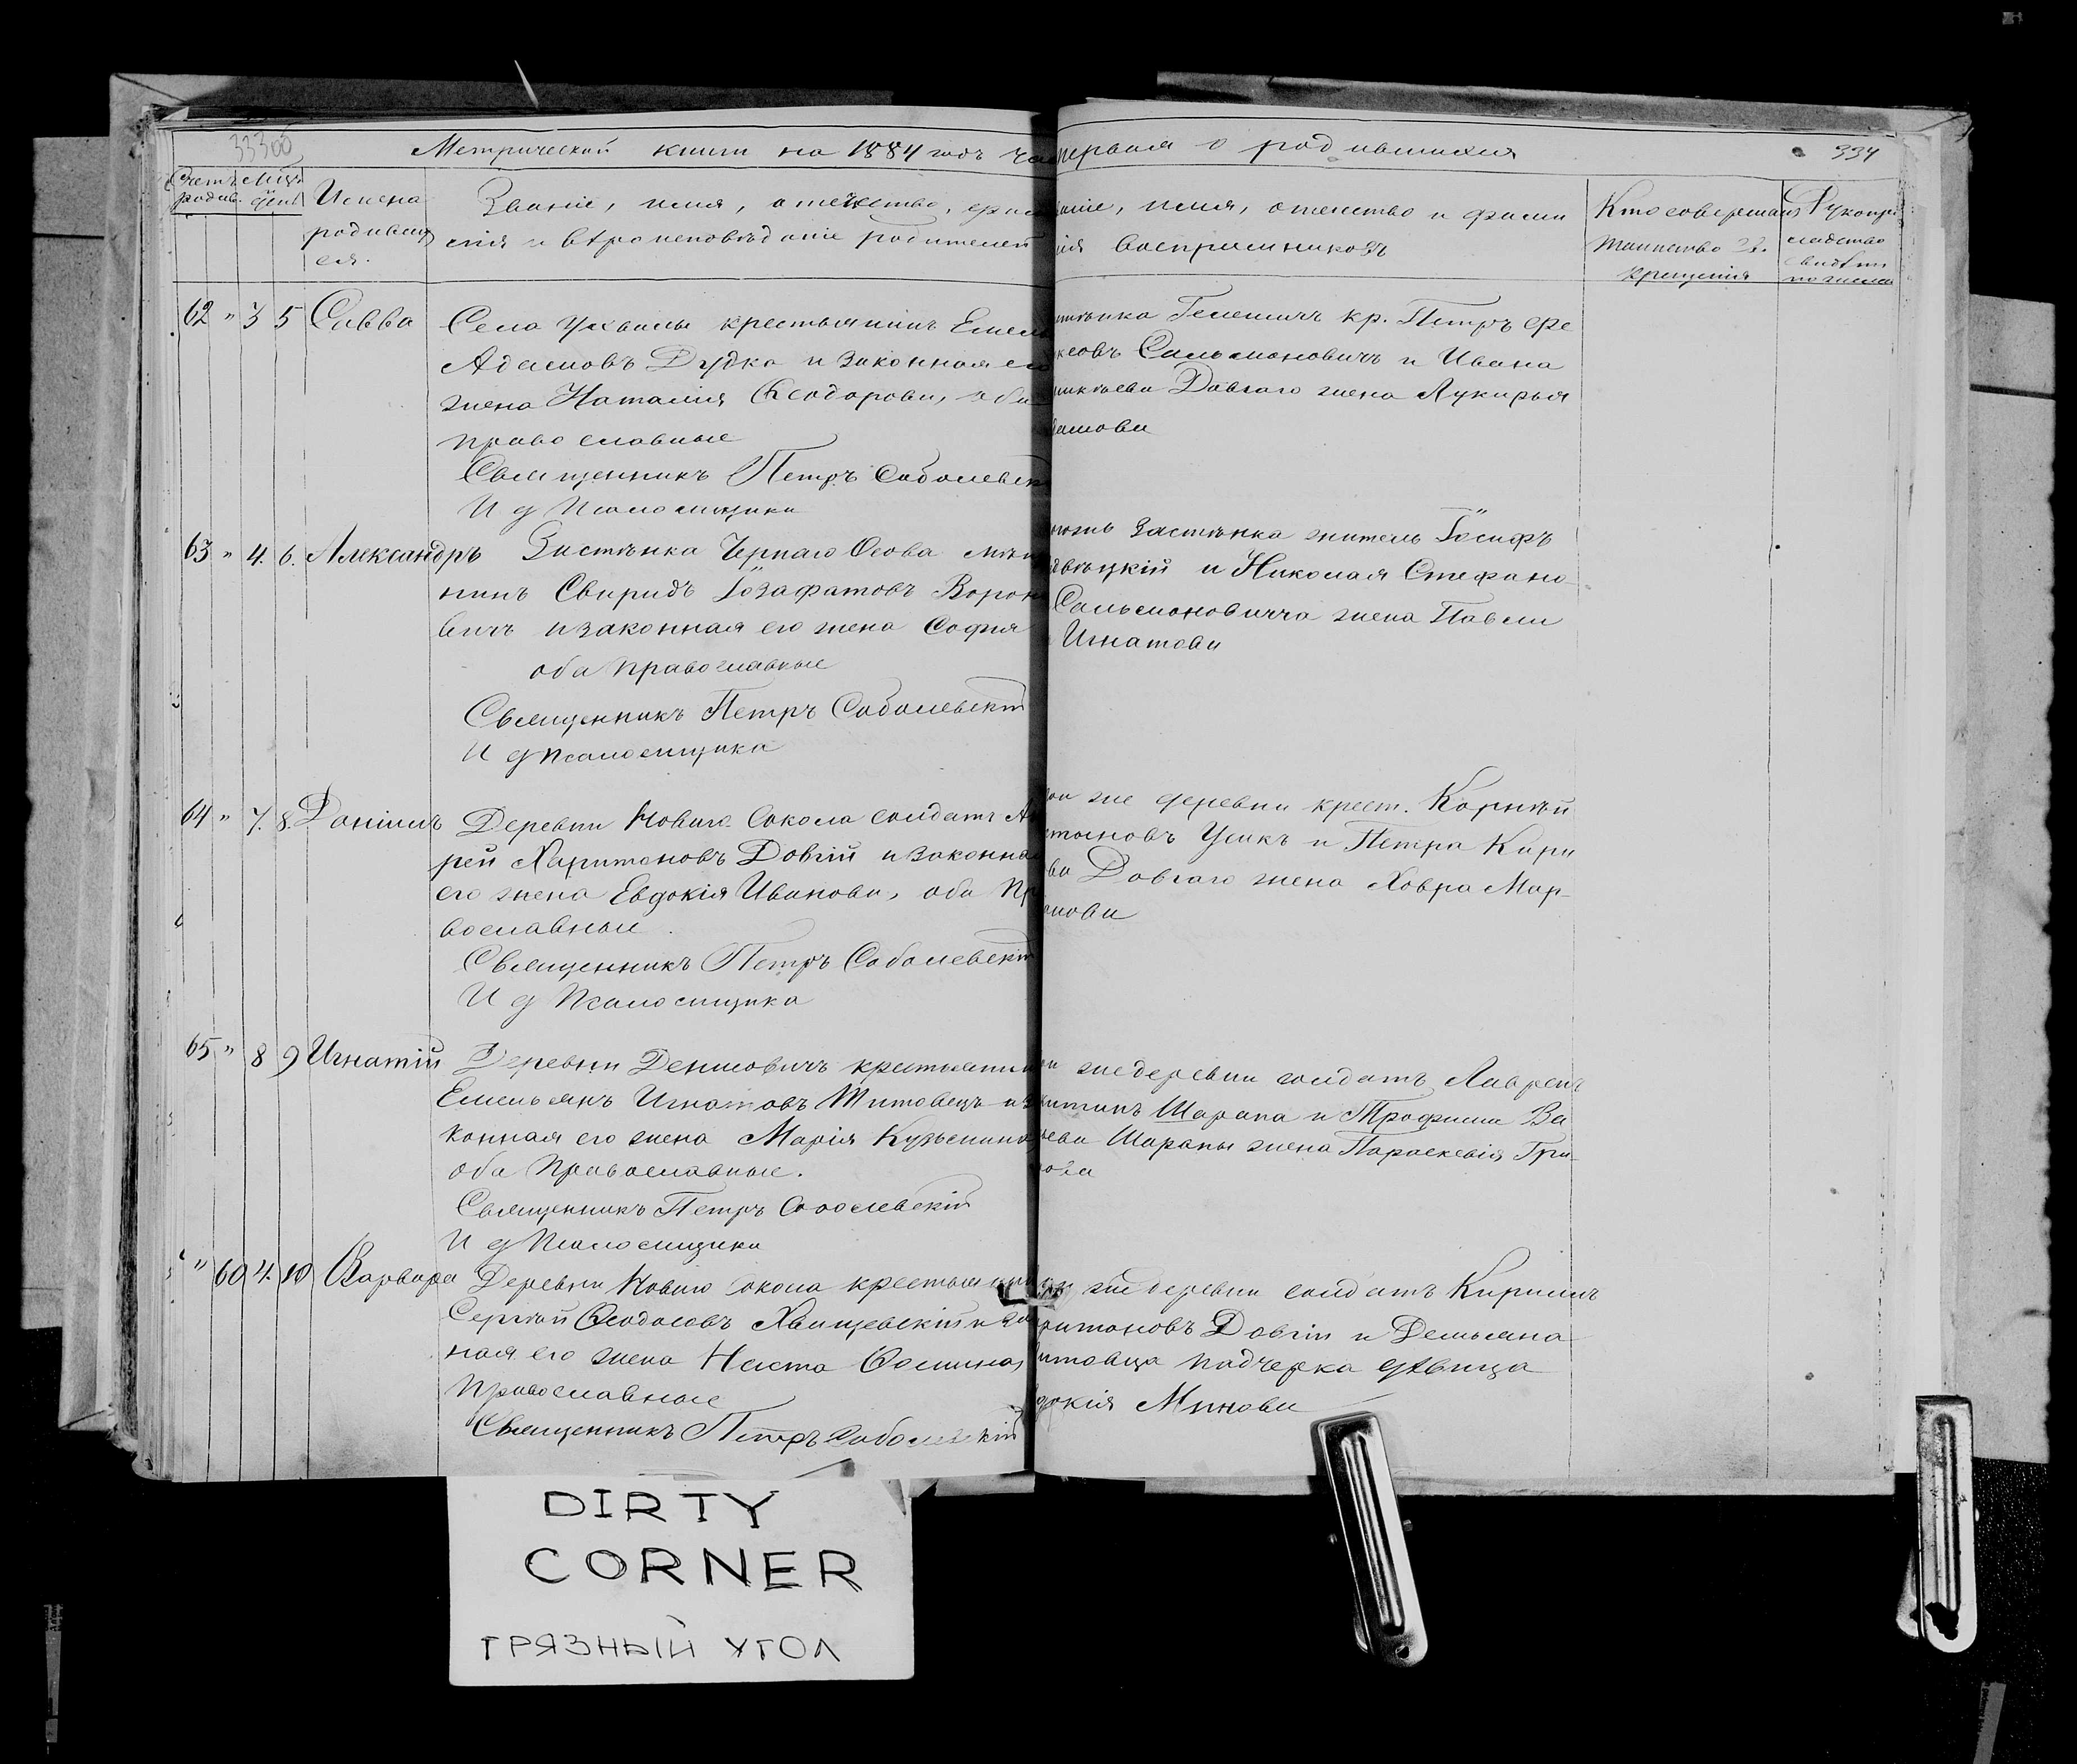 Метрической книги на 1884 годъ ча первая о родившихся
334
Счетъ родив. Мѣц. день
Имена родивших ся.
Званіе, имя, отечество, фами
лія и вѣроисповѣданіе родителей
ваніе, имя, отечество и фами
лія воспріемниковъ
Кто совершалъ
таинство св.
крещенія
Рукопри
кладство
свидѣте
по желан
62 " 3 5 Савва
Села Ухвалы крестьянинъ Емел
Адамовъ Дудка и законная его
жена Наталія Ѳеодорова, оба
православные
Священникъ Петръ Соболевск
И д Псаломщика
стѣнка кр. Петръ
ксовъ Сальмоновичъ и Ивана
Довгаго жена Лукирья
амова
63 " 4. 6. Александръ
Застѣнка Чернаго Осова мѣщ
нинъ Свиридъ Іозафатовъ Ворон
вичъ и законная его жена Софія
оба православные
Священникъ Петръ Соболевскій
И д Псаломщика
тогожъ Застѣнка житель Іосифъ
и Николая Стефано
Сальмоновичча жена Павели
Игнатова
64 " 7. 8. Даніилъ
Деревни Новаго Сокола солдатъ Ан
рей Харитоновъ Довгій и законная
его жена Евдокія Иванова, оба пр
вославные.
Священникъ Петръ Соболевскій
И д Псаломщика
той же деревни крест. Корнѣй
Усикъ и Петра Кири
ва Довгаго жена Ховра Мар-
65 " 8 9 Игнатій
Деревни Денисовичъ крестьянин
Емельянъ Игнатовъ Титовецъ и за
конная его жена Марія Кузьмина,
оба Православные.
Священникъ Петръ Соболевскій
И д Псаломщика
же деревни солдатъ Лаврен
Шарапа и Трофима Ва
ьева Шарапы жена Параскевія Гри-
" 60 4. 10 Варвара
Деревни Новаго Сокола крестьянин
Сергѣй Ѳеодосовъ Хвищевскій и за
ная его жена Наста Ѳомина,
православные
Священникъ Петръ Соболевскій
же деревни солдатъ Кириллъ
ритоновъ Довгій и Демьяна
итовца падчерка дѣвица
докія Минова
DIRTY
CORNER
ГРЯЗНЫЙ УГОЛ